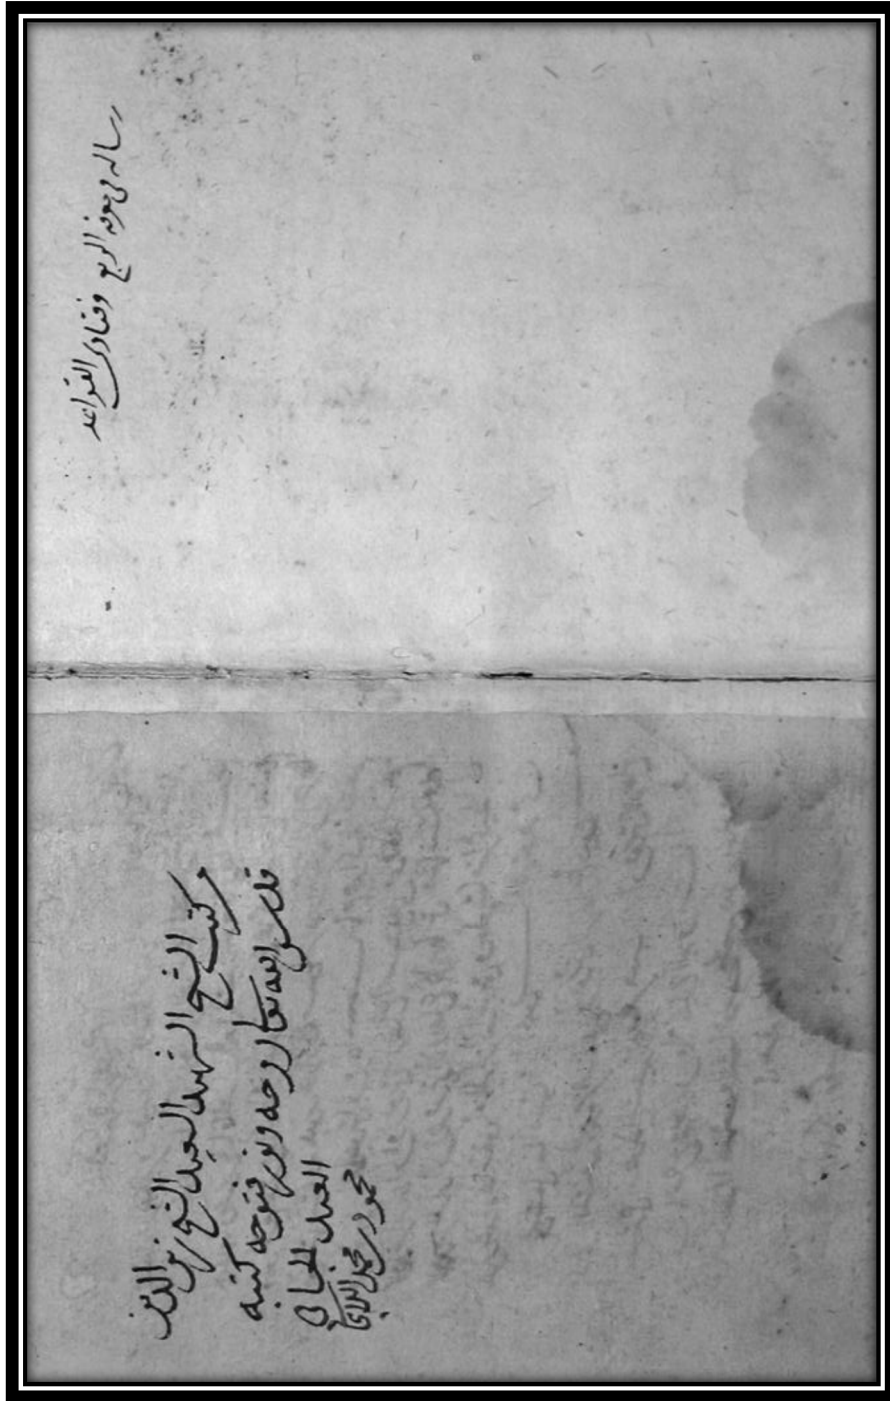 رساله فی معرفه الربع وفتاوی القواعد
من كتب الشيخ الشهيد السعيد الشيخ زين الدين
قدس الله تعالى روحه ونور ضريحه كتبه
العبد الجاني
محمود بن محمد